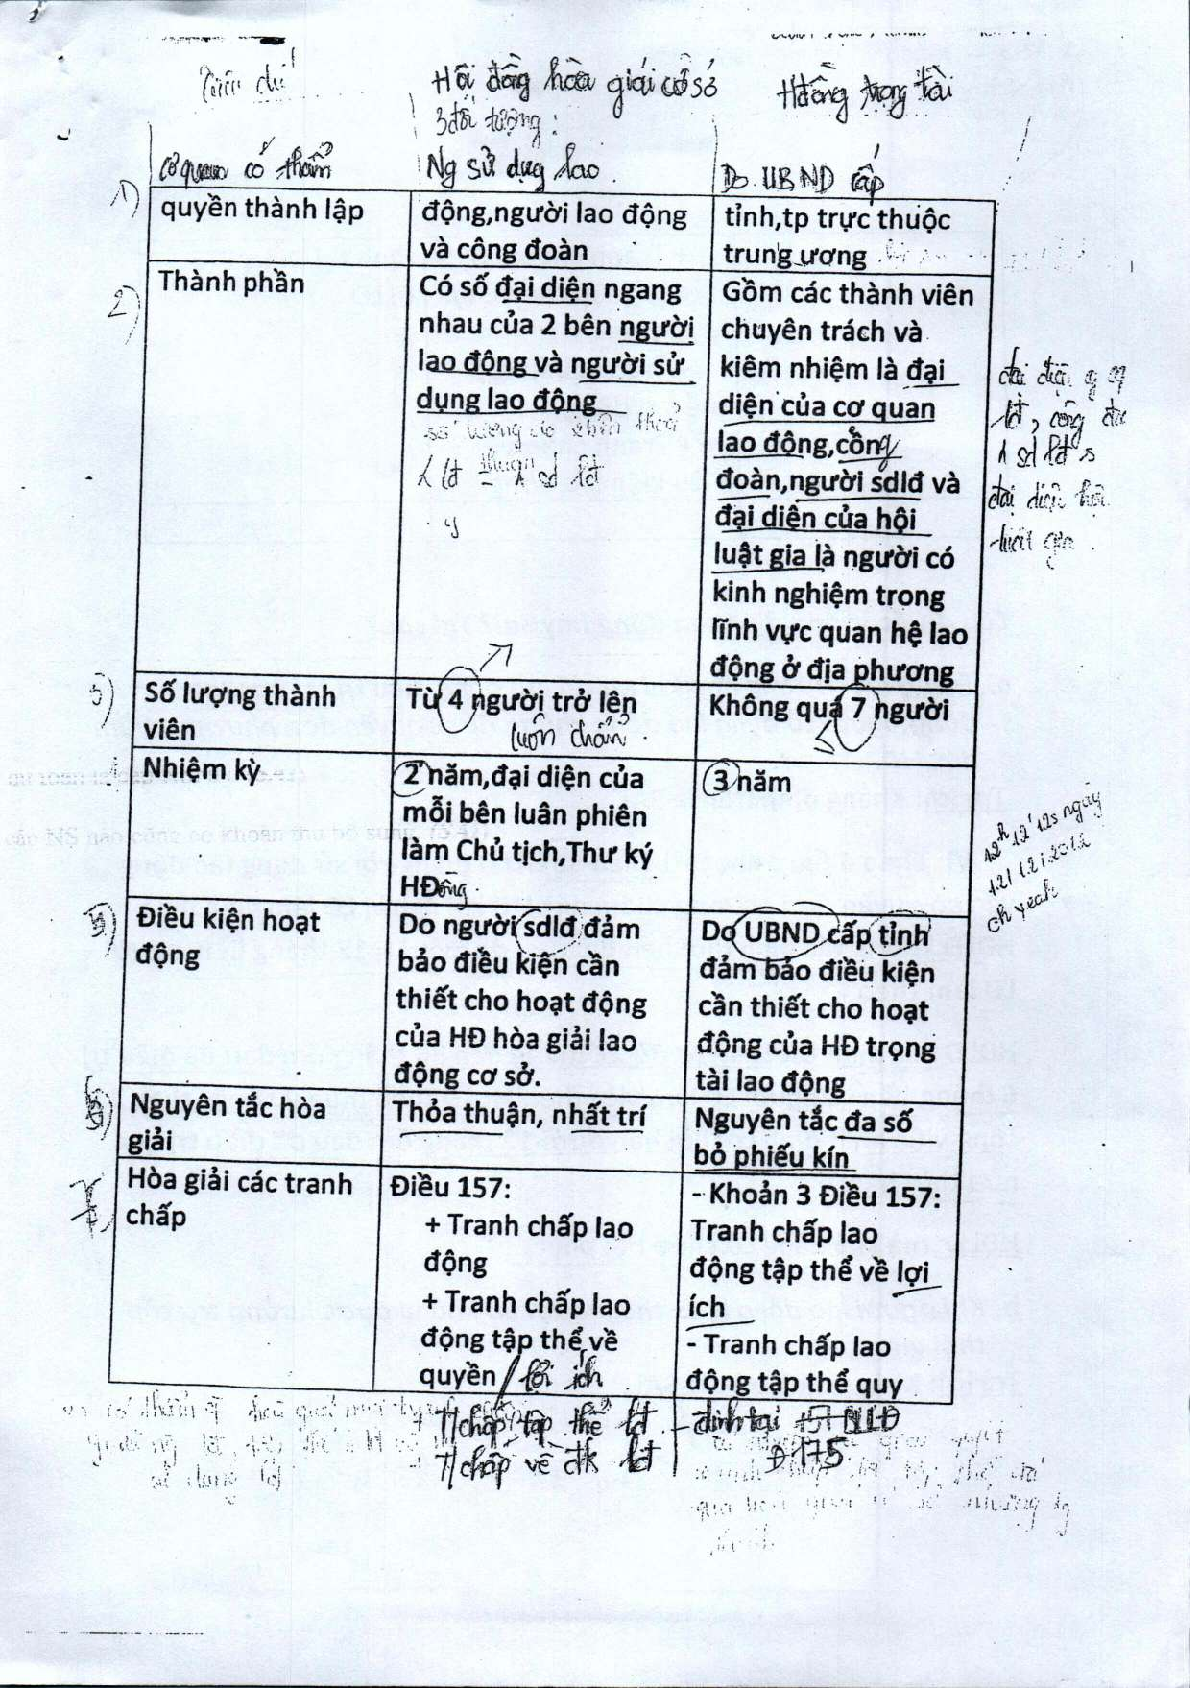 Hội đồng hòa giải cơ sở
Hđồng trọng tài
3 đối tượng:
cơ quan có thẩm
Ng sử dụng lao
Do UBND cấp
1)
quyền thành lập
động,người lao động
và công đoàn
tỉnh,tp trực thuộc
trung ương
2)
Thành phần
Có số đại diện ngang
nhau của 2 bên người
lao động và người sử
dụng lao động
Gồm các thành viên
chuyên trách và
kiêm nhiệm là đại
diện của cơ quan
lao động,công
đoàn,người sdlđ và
đại diện của hội
luật gia là người có
kinh nghiệm trong
lĩnh vực quan hệ lao
động ở địa phương
đại diện
3)
Số lượng thành
viên
Từ 4 người trở lên
luôn chẩn
Không quá 7 người
Nhiệm kỳ
2 năm,đại diện của
mỗi bên luân phiên
làm Chủ tịch,Thư ký
HĐồng.
3 năm
12h 12' 12s ngày
12/12/2012
oh yeah
5)
Điều kiện hoạt
động
Do người sdlđ đảm
bảo điều kiện cần
thiết cho hoạt động
của HĐ hòa giải lao
động cơ sở.
Do UBND cấp tỉnh
đảm bảo điều kiện
cần thiết cho hoạt
động của HĐ trọng
tài lao động
6)
Nguyên tắc hòa
giải
Thỏa thuận, nhất trí
Nguyên tắc đa số
bỏ phiếu kín
Hòa giải các tranh
chấp
Điều 157:
+ Tranh chấp lao
động
+ Tranh chấp lao
động tập thể về
quyền / lợi ích
- Khoản 3 Điều 157:
Tranh chấp lao
động tập thể về lợi
ích
- Tranh chấp lao
động tập thể quy
+ T/chấp tập thể lđ
T/chấp về đk lđ
định tại
Đ 175